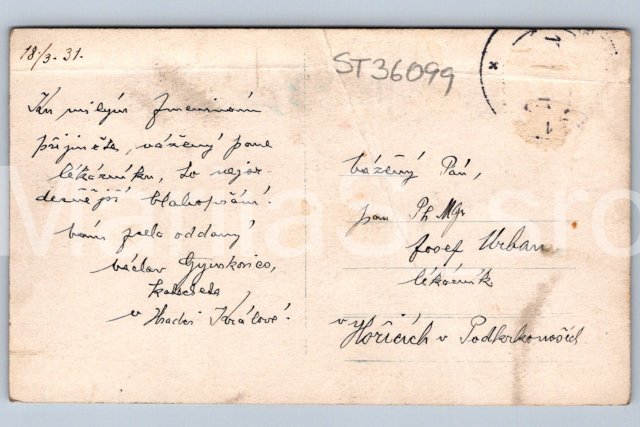 18./3. 31.
ST36099
Ku milým jmeninám
přijměte, vážený pane
lékárníku, to nejsr-
dečnější blahopřání!
Vám zcela oddaný
Václav
katecheta
v Hradci Králové!
Vážený Pán,
pan Ph Mgr
Josef Urban
lékárník
v Hořicích v Podkrkonoší